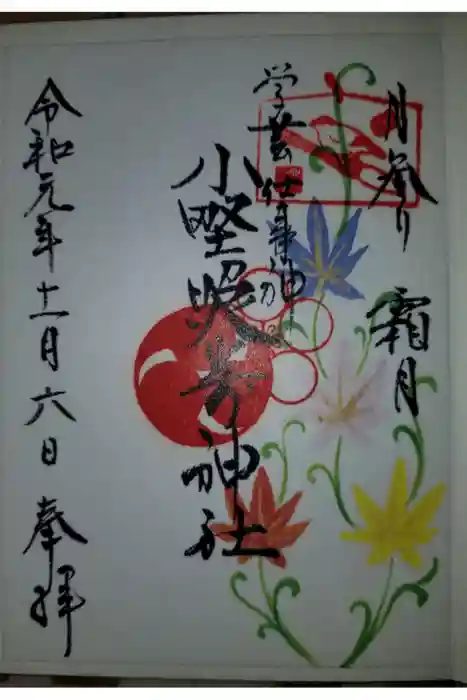 月参り 霜月
学芸仕事神
小野照崎神社
令和元年十一月六日 奉拝